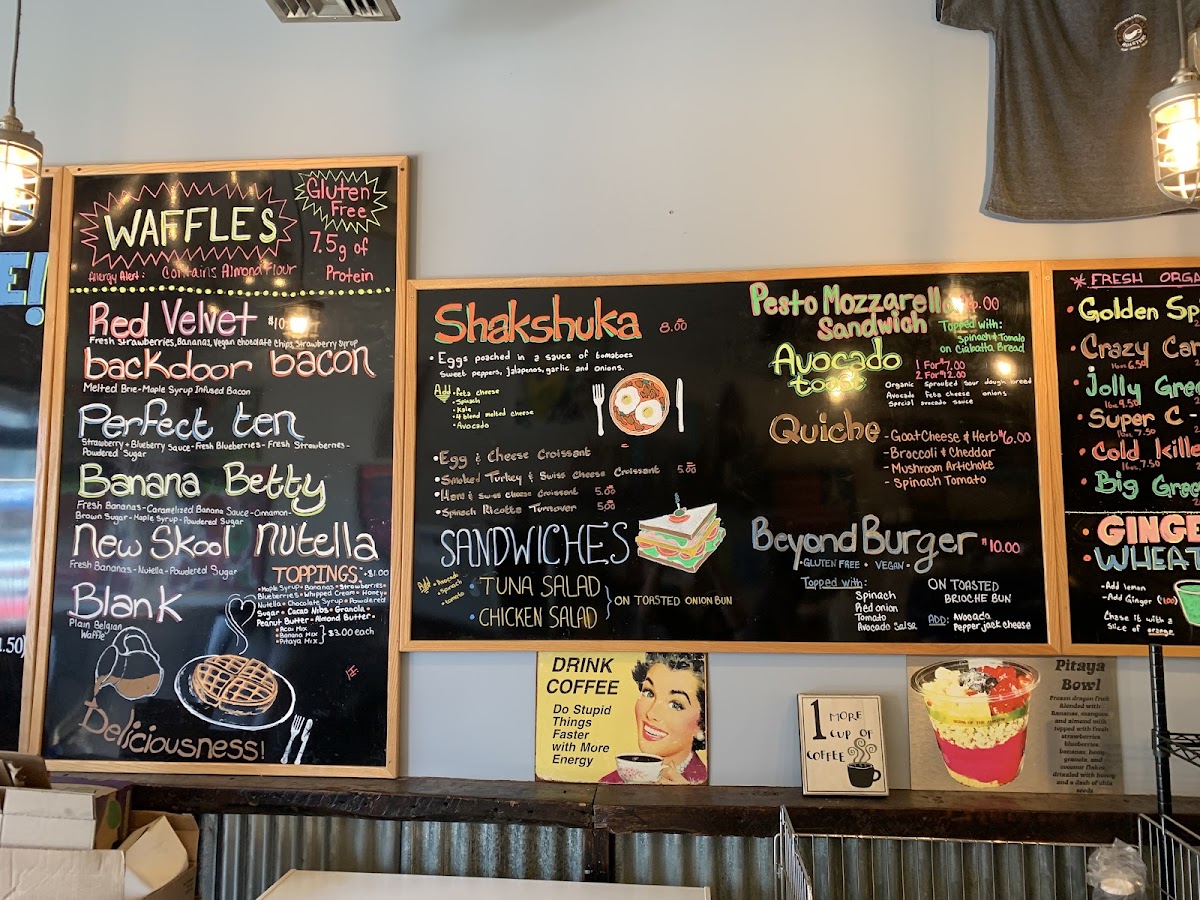 WAFFLES
Gluten
Free
7.5g of
Protein
Allergy Alert: Contains Almond Flour
Red Velvet
Fresh Strawberries, Bananas, Vegan chocolate chips, Strawberry syrup
backdoor bacon
Melted Brie-Maple Syrup Infused Bacon
Perfect ten
Strawberry + Blueberry Sauce-Fresh Blueberries-Fresh Strawberries-
Powdered Sugar
Banana Betty
Fresh Bananas-Caramelized Banana Sauce-Cinnamon-
Brown Sugar-Maple Syrup-Powdered Sugar
New Skool Nutella
Fresh Bananas-Nutella-Powdered Sugar
Blank
Plain Belgian
Waffle
TOPPINGS: +$1.00
Maple Syrup • Bananas • Strawberries •
Blueberries • Whipped Cream • Honey
Nutella • Chocolate Syrup • Powdered
Sugar • Cacao Nibs • Granola •
Peanut Butter • Almond Butter •
• Acai Mix
• Banana Mix
• Pitaya Mix
$3.00 each
Deliciousness!
Shakshuka 8.00
• Eggs poached in a sauce of tomatoes
Sweet peppers, jalapenos, garlic and onions.
Add • feta cheese
• Spinash
• Kale
• 4 blend melted cheese
• Avocado
• Egg & Cheese Croissant
• Smoked Turkey & Swiss Cheese Croissant 5.00
• Ham & Swiss cheese Croissant 5.00
• Spinach Ricotta Turnover 5.00
SANDWICHES
Add • Avocado
• Spinach
• tomato
• TUNA SALAD
• CHICKEN SALAD
ON TOASTED ONION BUN
Pesto Mozzarella
Sandwich
Topped with:
Spinach & Tomato
on Ciabatta Bread
Avocado
toast
1 For $7.00
2 For $12.00
Organic Sprouted sour dough bread
Avocado feta cheese onions
Special avocado sauce
Quiche - Goat Cheese & Herb $6.00
- Broccoli & Cheddar
- Mushroom Artichoke
- Spinach Tomato
Beyond Burger $10.00
• GLUTEN FREE • VEGAN •
Topped with:
Spinach
Red onion
Tomato
Avocado Salsa
ON TOASTED
BRIOCHE BUN
ADD: Avocado
Pepper jack cheese
* FRESH ORGA
• Golden Sp
• Crazy Car
16oz 6.50
• Jolly Gree
• Super C -
• Cold Kille
16oz 7.50
• Big Gree
• GINGE
• WHEAT
- Add lemon
- Add Ginger
Chase it with a
slice of orange
DRINK
COFFEE
Do Stupid
Things
Faster
with More
Energy
1 MORE
CUP OF
COFFEE
Pitaya
Bowl
Frozen dragon fruit
blended with
bananas, mangoes
and almond milk
topped with fresh
strawberries
blueberries
bananas, hemp
granola, and
coconut flakes,
drizzled with honey
and a dash of chia
seeds
E!
1.50)